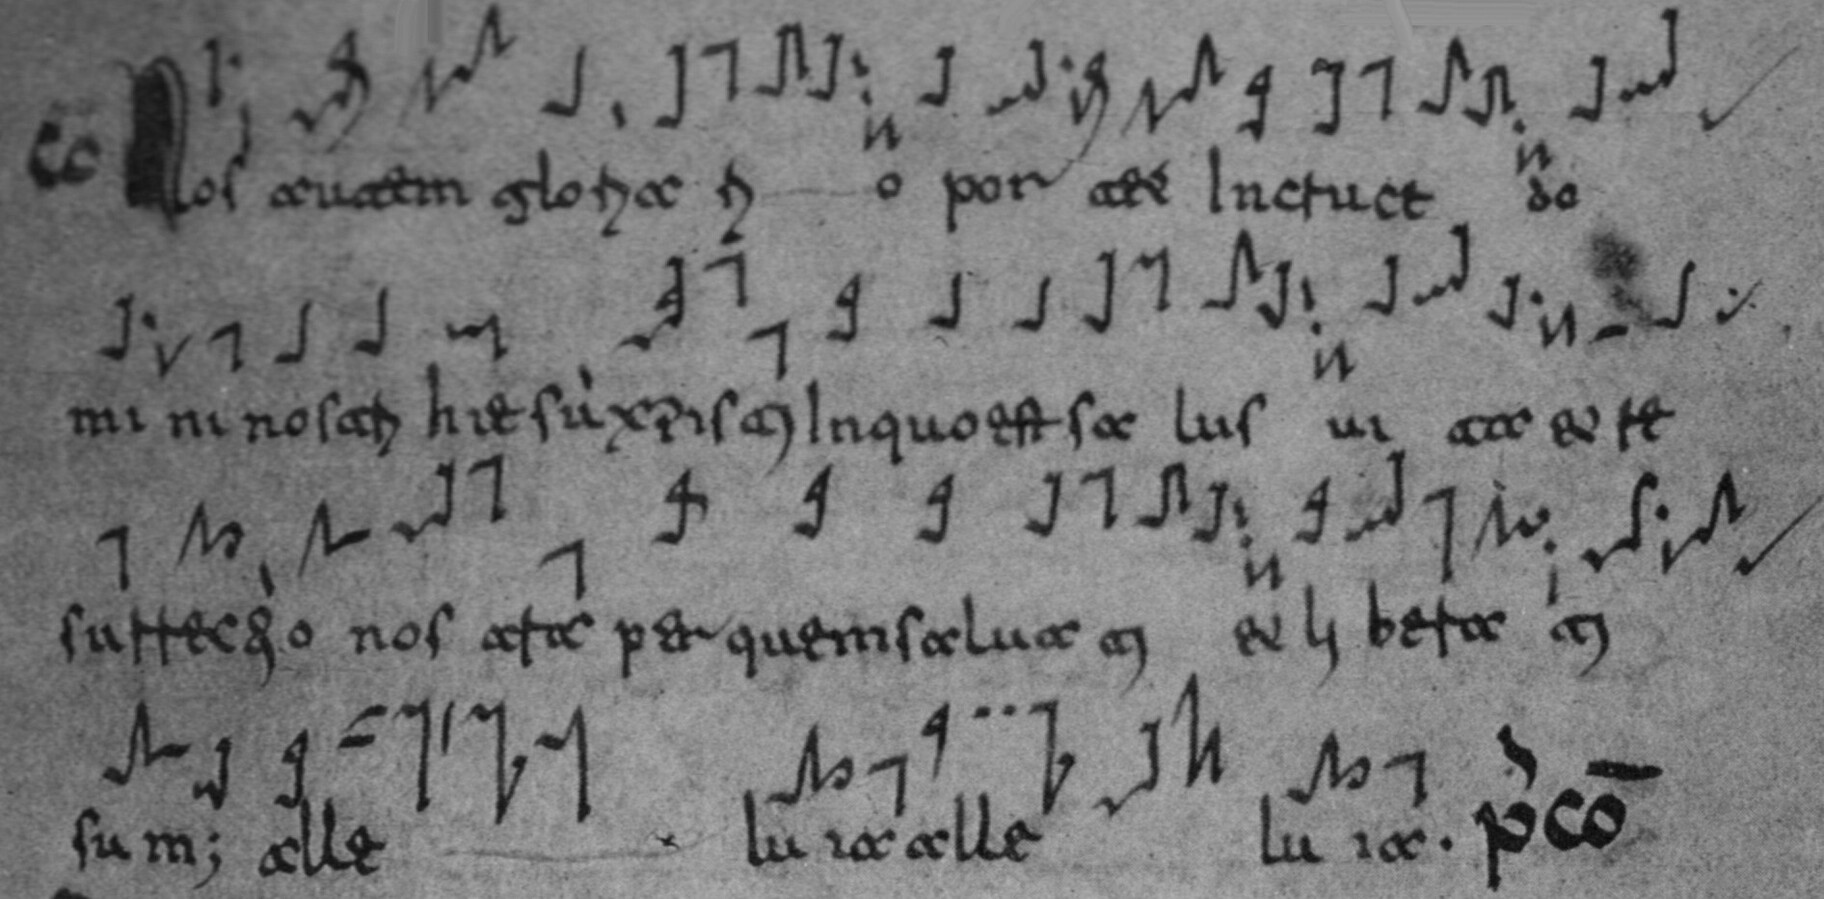 CO Nos autem gloria ri o por tet In cruce do
mi ni nostri hiesu xpisti In quo est sa lus ui ta et re
surrectio nos tra per quem salua ti et li bera ti
sum; alle lu ia alle lu ia. p̄co